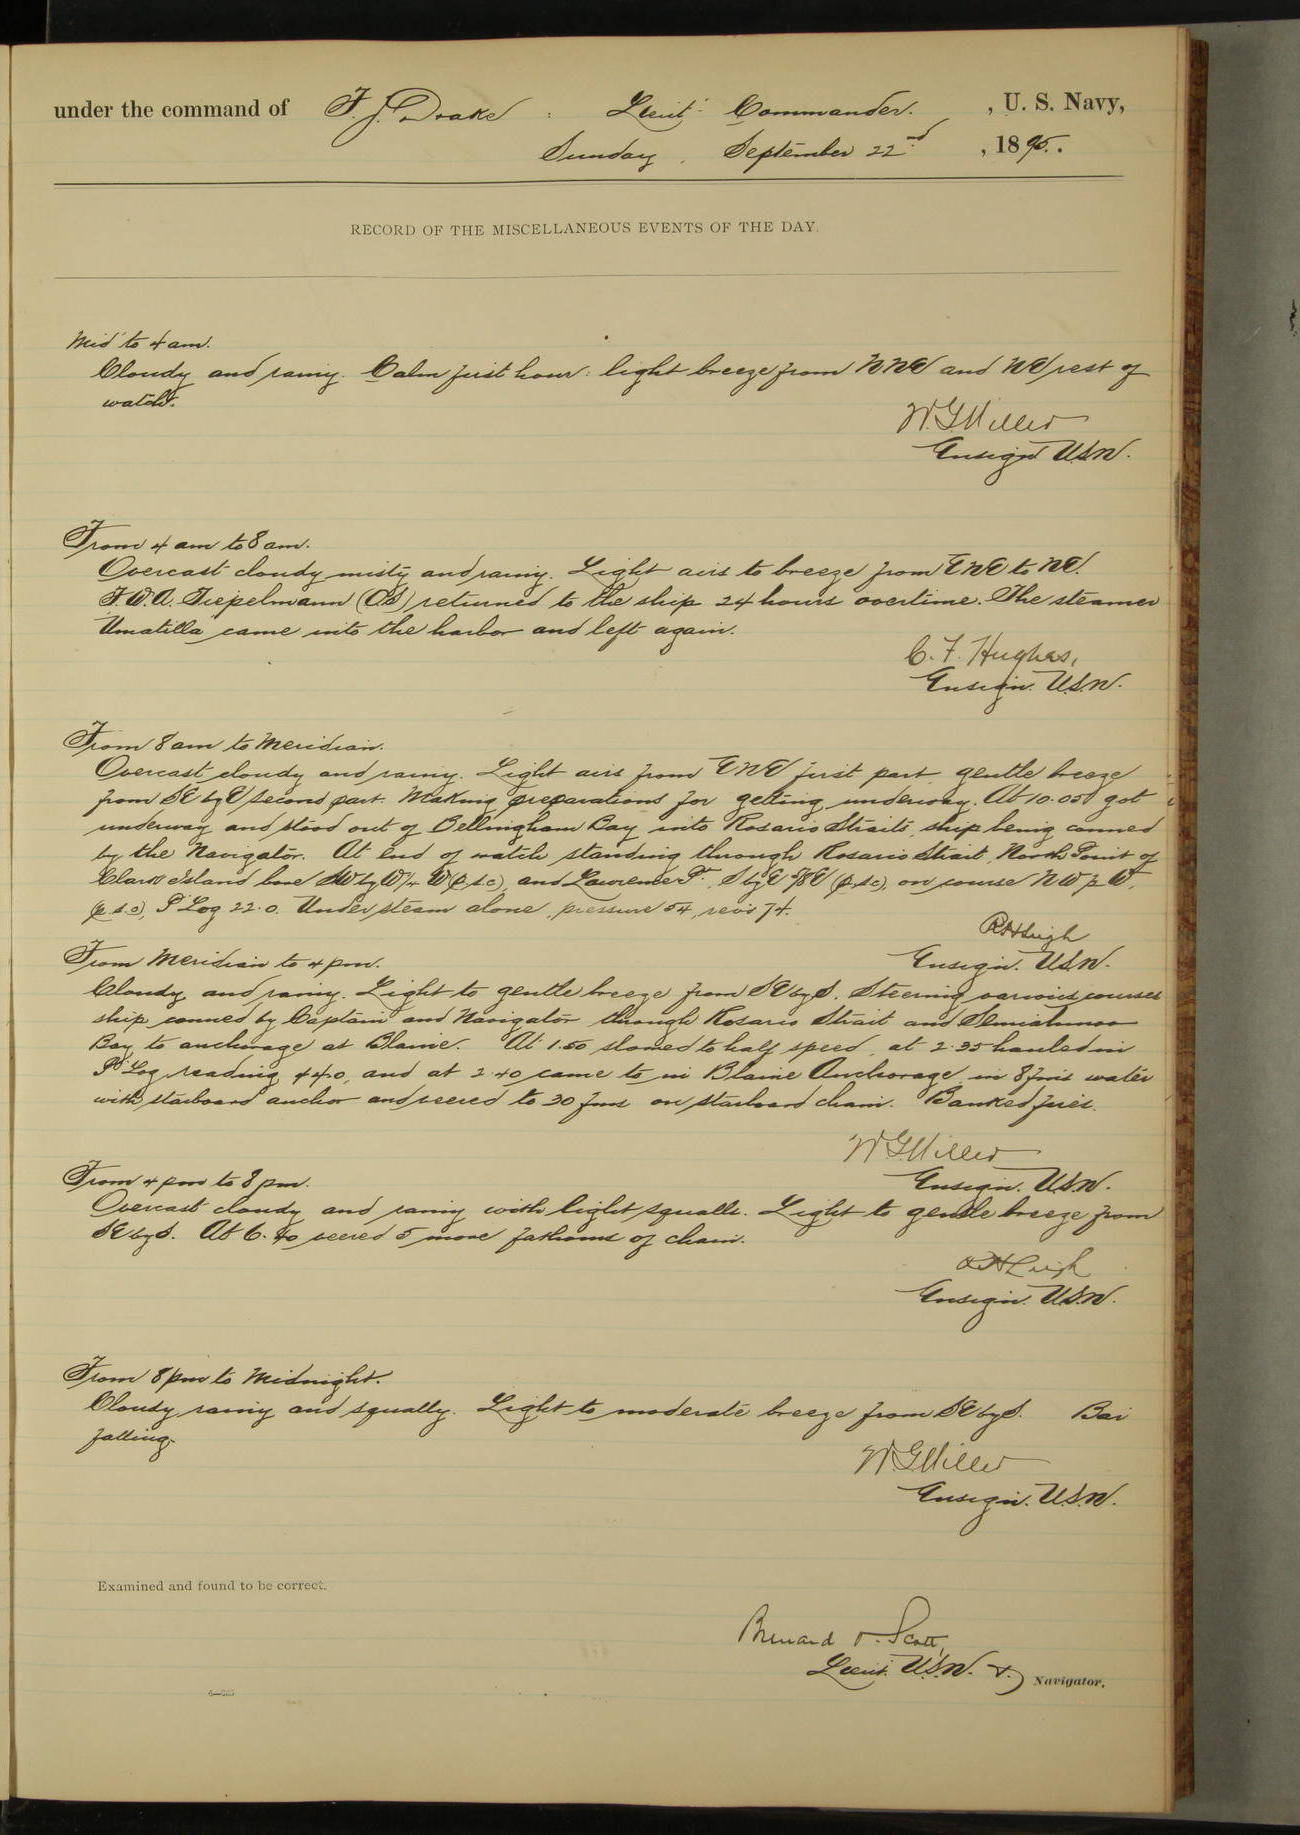 under the command of F. J. Drake, Lieut. Commander. , U. S. Navy,
Sunday, September 22nd , 1895.
RECORD OF THE MISCELLANEOUS EVENTS OF THE DAY.
Mid to 4 am.
Cloudy and rainy. Calm first hour: light breeze from NNE and NE rest of
watch.
W. G. Miller
Ensign U.S.N.
From 4 am to 8 am.
Overcast cloudy misty and rainy. Light airs to breeze from ENE to NE.
F. W. A. Tiepelmann returned to the ship 24 hours overtime. The steamer
Umatilla came into the harbor and left again.
C. F. Hughes,
Ensign. U.S.N.
From 8 am to Meridian.
Overcast cloudy and rainy. Light airs from ENE first part, gentle breeze
from SE by E second part. Making preparations for getting underway. At 10.05 got
underway and stood out of Bellingham Bay into Rosario Straits, ship being conned
by the Navigator. At end of watch standing through Rosario Strait, North Point of
Clark Island bore SW by W 1/4 W (p.s.c), and Lawrence Pt. S by E 5/8 E (p.s.c), on course NW W,
(p.s.c), P Log 22.0. Under steam alone, pressure 54, revs 74.
R H Leigh
Ensign. U.S.N.
From Meridian to 4 pm.
Cloudy and rainy. Light to gentle breeze from SE by S. Steering various courses
ship conned by Captain and Navigator through Rosario Strait and Semiahmoo
Bay to anchorage at Blaine. At 1.50 slowed to half speed, at 2.35 hauled in
P Log reading 44.0, and at 2.40 came to in Blaine Anchorage in 8 fms water
with starboard anchor and veered to 30 fms on starboard chain. Banked fires.
W. G. Miller
Ensign. U.S.N.
From 4 pm to 8 pm.
Overcast cloudy and rainy with light squalls. Light to gentle breeze from
SE by S. At 6.40 veered 5 more fathoms of chain.
R H Leigh
Ensign. U.S.N.
From 8 pm to Midnight.
Cloudy rainy and squally. Light to moderate breeze from SE by S. Bar
falling.
W. G. Miller
Ensign. U.S.N.
Examined and found to be correct.
Bernard O. Scott,
Lieut. U.S.N. & Navigator.